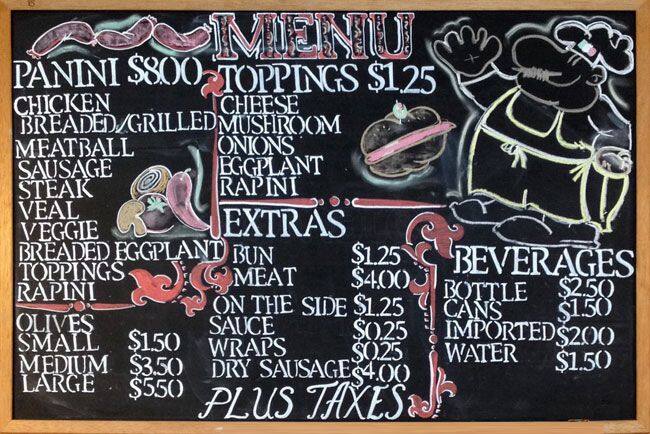 MENU
PANINI $8.00
CHICKEN
BREADED/GRILLED
MEATBALL
SAUSAGE
STEAK
VEAL
VEGGIE
BREADED EGGPLANT
TOPPINGS
RAPINI
OLIVES
SMALL $1.50
MEDIUM $3.50
LARGE $5.50
TOPPINGS $1.25
CHEESE
MUSHROOM
ONIONS
EGGPLANT
RAPINI
EXTRAS
BUN $1.25
MEAT $4.00
ON THE SIDE $1.25
SAUCE $0.25
WRAPS $0.25
DRY SAUSAGE $4.00
PLUS TAXES
BEVERAGES
BOTTLE $2.50
CANS $1.50
IMPORTED $2.00
WATER $1.50